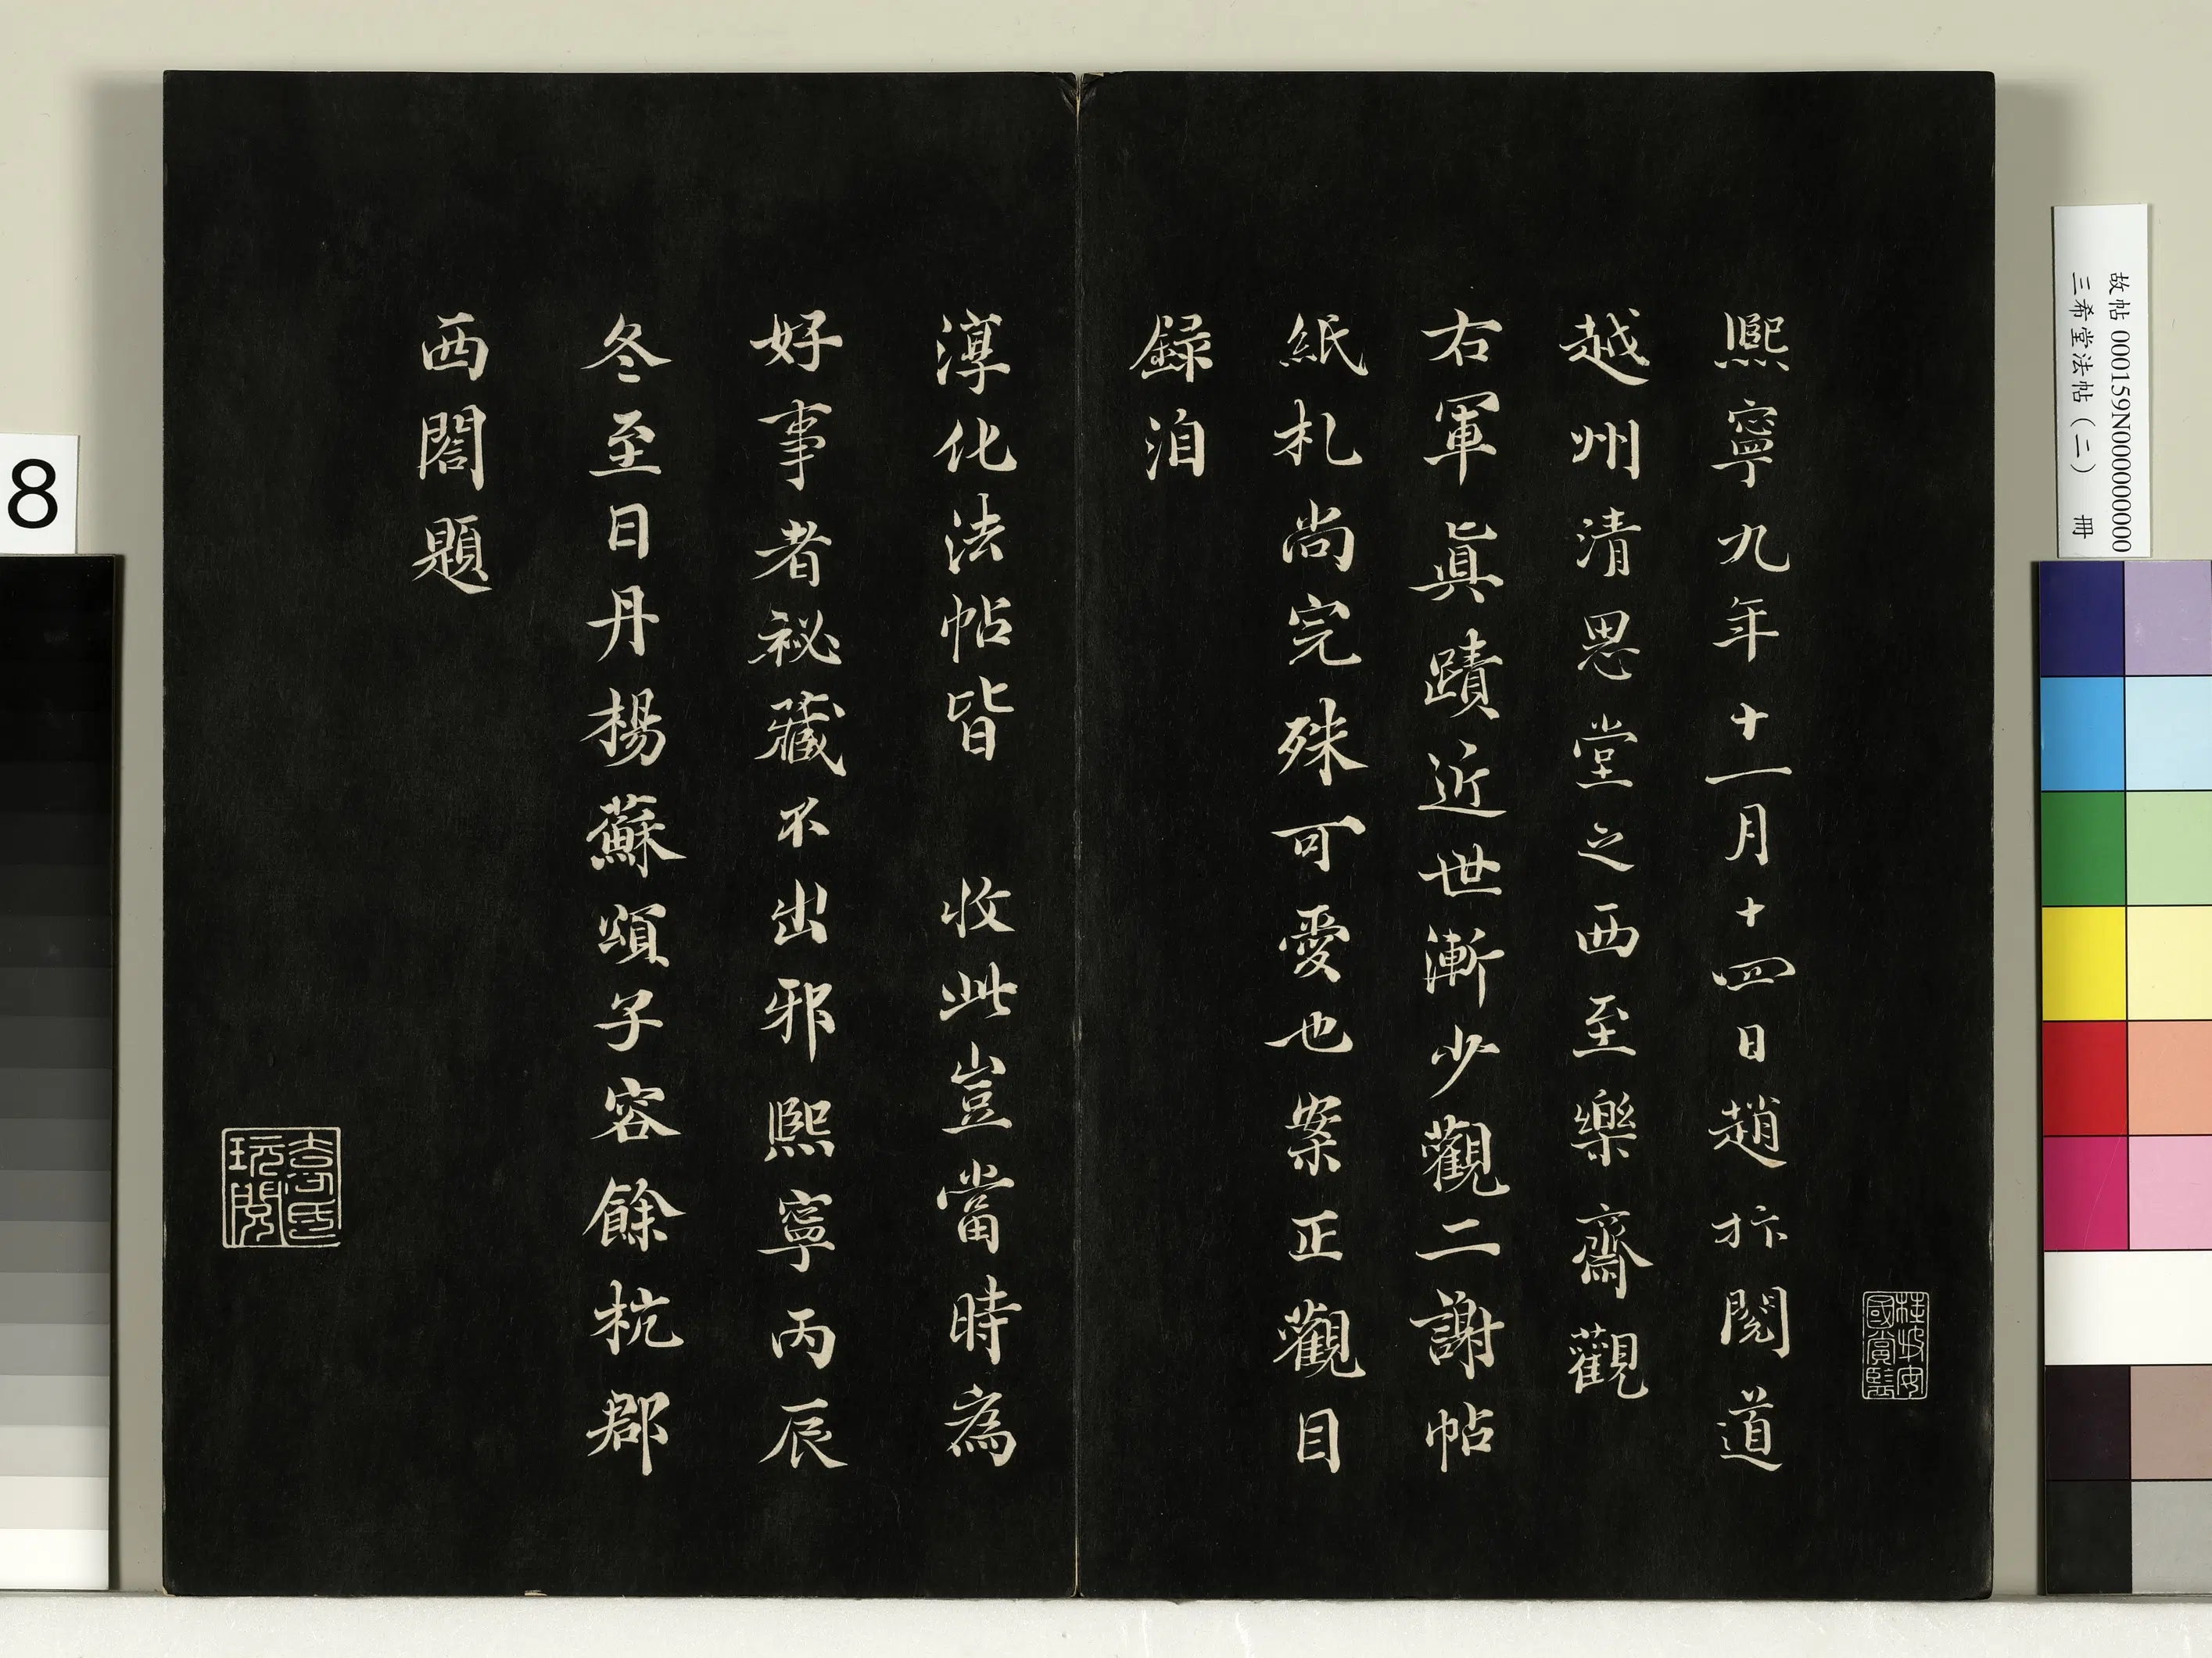 熙寧九年十一月十四日趙抃閱道
越州清思堂之西至樂齋觀
右軍真蹟近世漸少觀二謝帖
紙札尚完殊可愛也案正觀目
録洎
淳化法帖皆　收此豈當時為
好事者祕藏不出邪熙寧丙辰
冬至日丹楊蘇頌子容餘杭郡
西閤題
桂坡安
國賞鑒
玩閱
故帖 000159N000000000
三希堂法帖(二) 冊
8